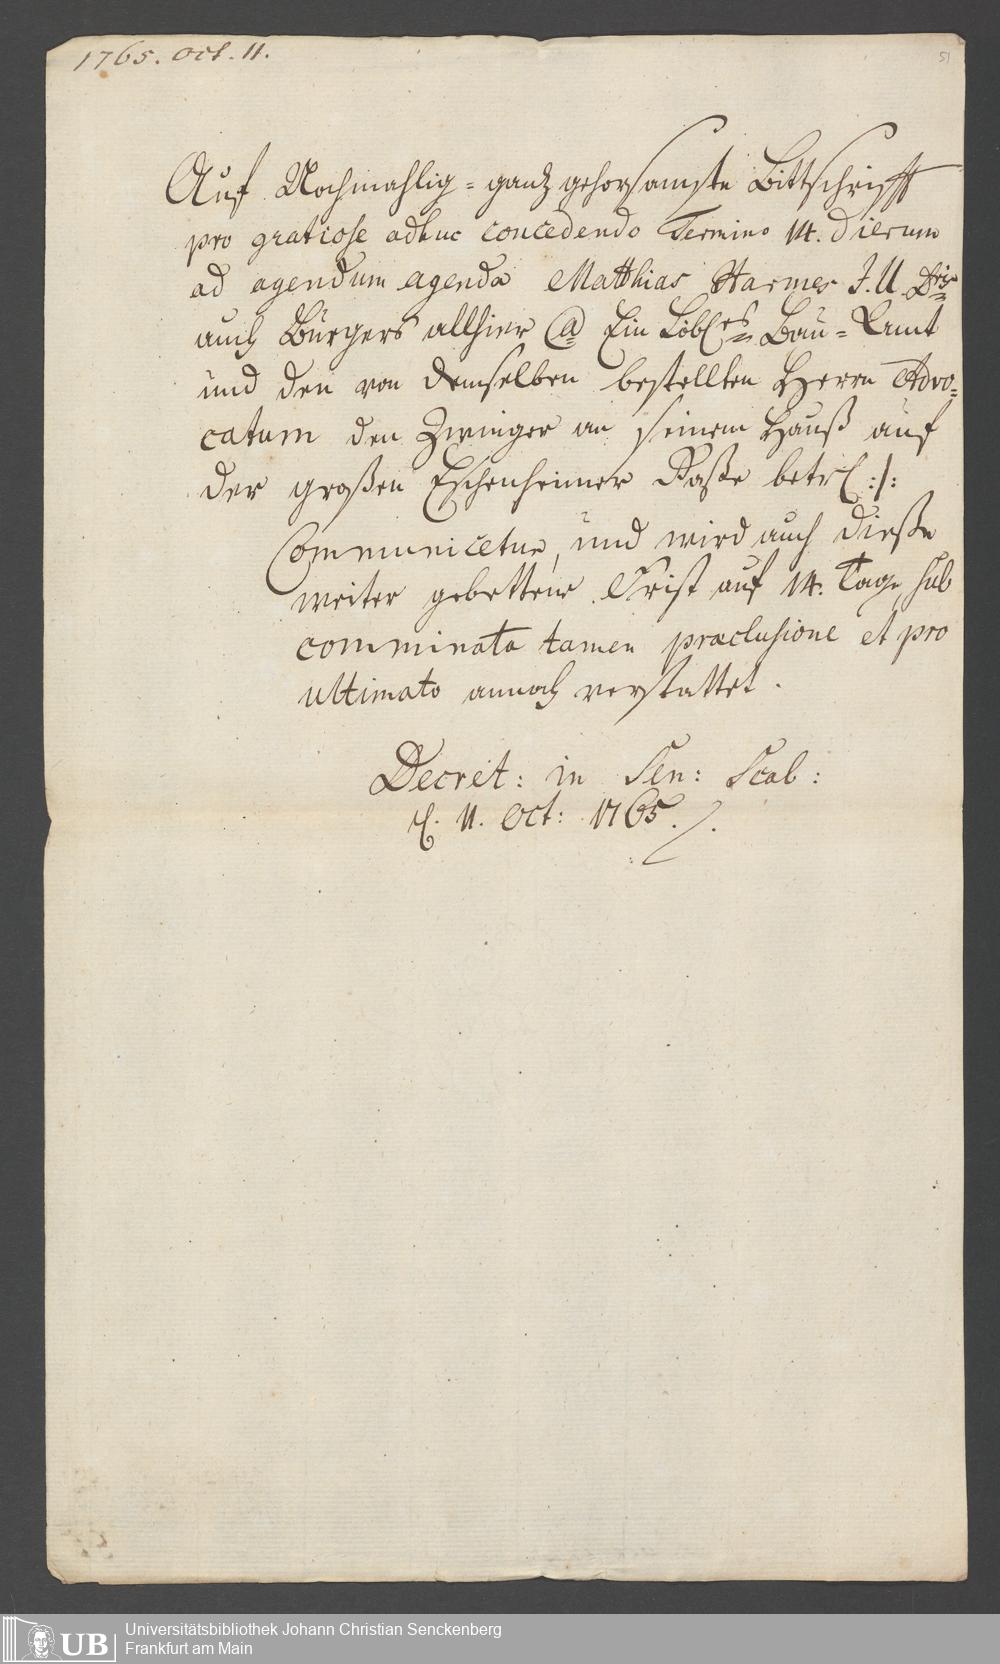 1765. Oct. 11.
51
Auf Nochmahlig = gantz gehorsamste Bittschrifft
pro gratiose adhuc concedendo Termino 14. dierum
ad agendum agenda Matthias Harmes J. U. Dris
auch Bürgers allhier @ Ein Löbl.es Bau = Amt
und den von demselben bestellten Herrn Advo=
catum den Zwinger an seinem Hauß auf
der großen Eschenheimer Gaße betrl :/:
Communicetur, und wird auch dieße
weiter gebettene Frist auf 14. Tage, sub
comminata tamen præclusione et pro
ultimato annoch verstattet.
Decret: in Sen: Scab:
d. 11. Oct: 1765.
UB
Universitätsbibliothek Johann Christian Senckenberg
Frankfurt am Main